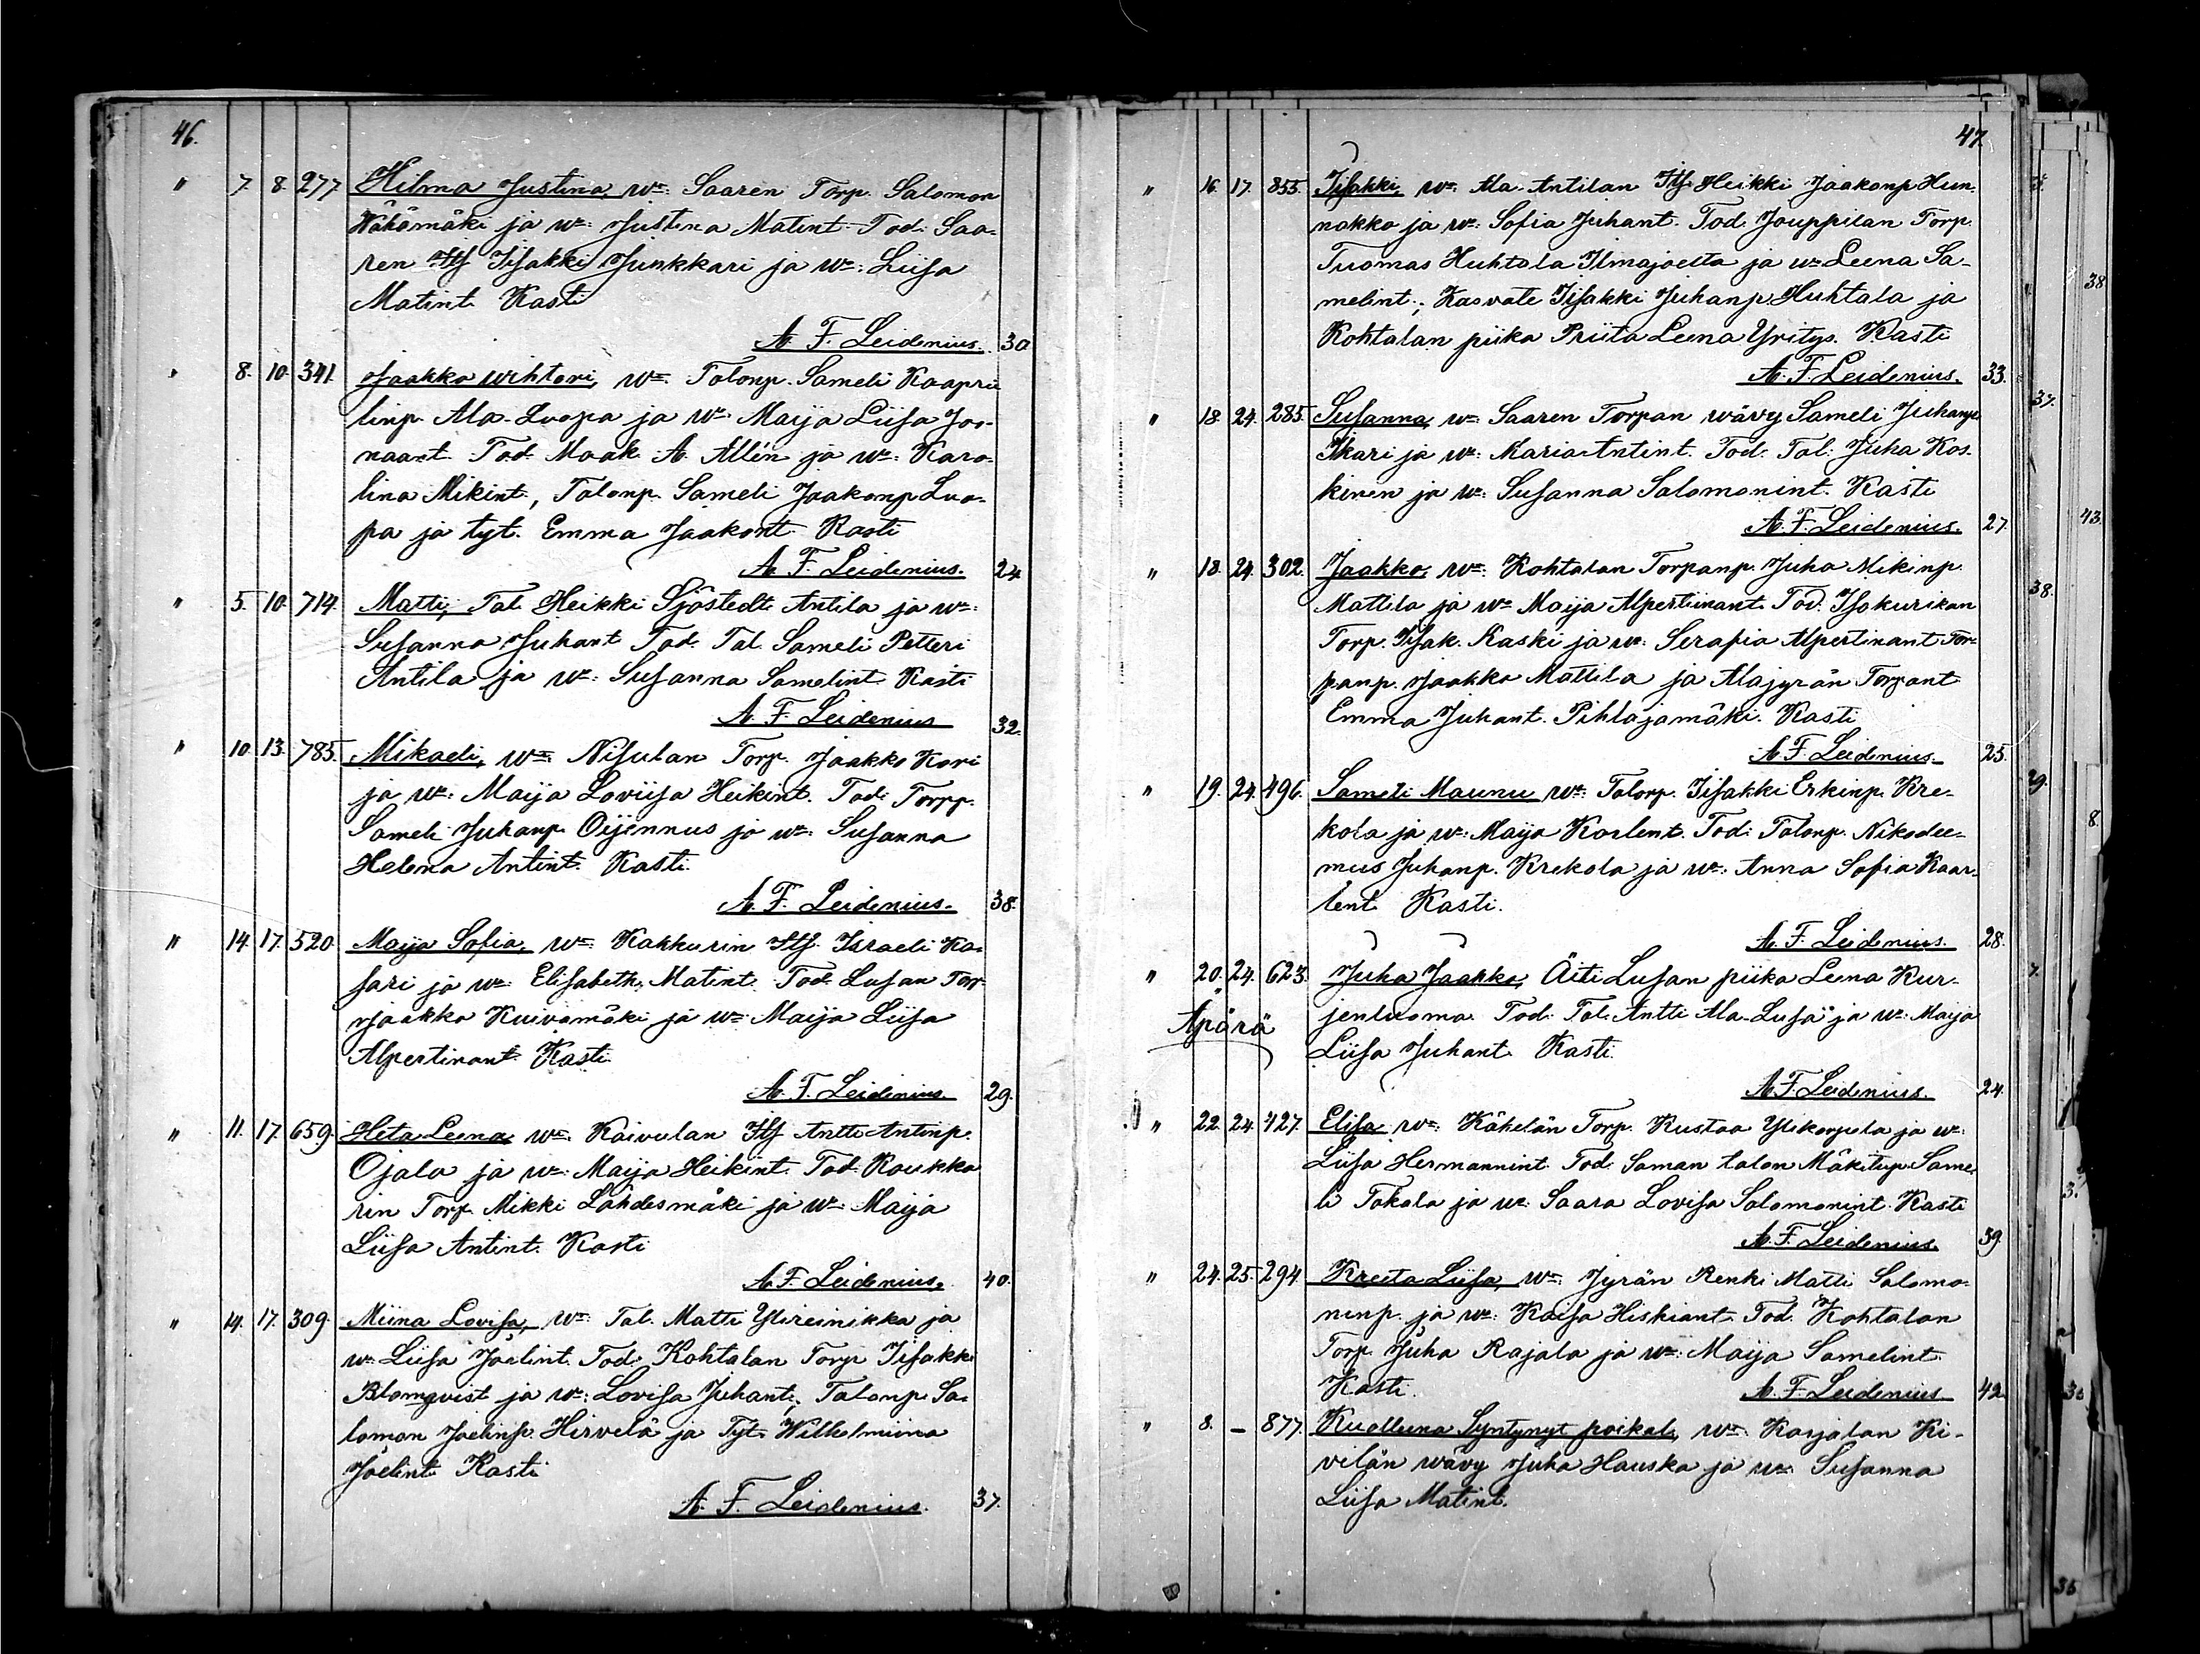 46.
" 7. 8. 277 Hilma Justina, wn: Saaren Torp. Salomon
Kähämäki ja wn: Justina Matint. Tod. Saa-
ren Itll Iisakki Junkkari ja wn: Liisa
Matint. Kasti
A. F. Leidenius. 30
" 8. 10. 341. Jaakko Wihtori, wn: Talonp. Sameli Kaaprie
linp. Ala-Luopa ja wn: Maija Liisa Joo-
naant. Tod. Maak. A. Allén ja wn: Karo-
lina Mikint., Talonp. Sameli Jaakonp Luo-
pa ja tyt. Emma Jaakont. Kasti
A. F. Leidenius. 24
" 5. 10. 714. Matti, Tal. Heikki Sjöstedt Antila ja wn:
Susanna Juhant Tod. Tal. Sameli Petteri
Antila ja wn: Susanna Samelint. Kasti
A. F. Leidenius 32.
" 10. 13. 785. Mikaeli, wn: Nisulan Torp. Jaakko Kori
ja wn: Maija Loviisa Heikint. Tod. Torpp.
Sameli Juhanp. Oijennus ja wn: Susanna
Helena Antint. Kasti.
A. F. Leidenius. 38.
" 14. 17. 520. Maija Sofia, wn: Kakkurin Itll. Israeli Ka-
sari ja wn: Elisabeth Matint. Tod. Lusan Torp
Jaakko Kuivamäki ja wn: Maija Liisa
Alpertinant. Kasti.
A. F. Leidenius. 29.
" 11. 17. 659. Heta Leena, wn: Kaivulan Itll Antti Antinp.
Ojala ja wn: Maija Heikint. Tod. Koukka
rin Torp. Mikki Lähdesmäki ja wn: Maija
Liisa Antint. Kasti
A. F. Leidenius. 40.
" 14. 17. 309. Miina Lovisa, wn: Tal. Matti Ylireinikka ja
wn: Liisa Joelint. Tod. Kohtalan Torp. Iisakki
Blomqvist ja wn: Lovisa Juhant., Talonp. Sa-
lomon Joelinp. Hirvelä ja Tyt. Wilhelmiina
Joelint. Kasti
A. F. Leidenius. 37.
47.
" 16. 17. 855. Iisakki, wn: Ala-Antilan Itll Heikki Jaakonp. Hun-
nakko ja wn: Sofia Juhant. Tod. Jouppilan Torp.
Tuomas Huhtala Ilmajoelta ja wn: Leena Sa-
melint.; Kasvate Iisakki Juhanp. Huhtala ja
Kohtalan piika Priita Leena Yritys. Kasti
A. F. Leidenius. 33.
" 18. 24. 285. Susanna, wn: Saaren Torpan wävy Sameli Juhanp.
Ikari ja wn: Maria Antint. Tod. Tal. Juha Kos-
kinen ja wn: Susanna Salomonint. Kasti
A. F. Leidenius. 27.
" 18. 24. 302. Jaakko, wn: Kohtalan Torpanp. Juha Mikinp.
Mattila ja wn: Maija Alpertinant. Tod. Isokurikan
Torp. Iisak. Kaski ja wn: Serafia Alpertinant Tor-
panp. Jaakko Mattila ja Alajyrän Torpant
Emma Juhant. Pihlajamäki. Kasti
A. F. Leidenius. 25.
" 19. 24. 496. Sameli Maunu wn: Talonp. Iisakki Erkinp. Kre-
kola ja wn: Maija Korlent. Tod. Talonp. Nikodee-
mus Juhanp. Krekola ja wn: Anna Sofia Kaar-
lent. Kasti.
A. F. Leidenius. 28.
" 20. 24. 623. Juha Jaakko, Äiti Lusan piika Leena Kur-
jenluoma. Tod. Tal. Antti Ala-Lusa ja wn: Maija
Äpärä
Liisa Juhant. Kasti.
A. F. Leidenius. 24.
" 22. 24. 427. Elisa, wn: Kähelän Torp. Kustaa Ylikorpela ja wn:
Liisa Hermannint. Tod. Saman talon Mäkitup. Same-
li Takala ja wn: Saara Lovisa Salomonint. Kasti
A. F. Leidenius. 39.
" 24. 25. 294. Kreeta Liisa, wn: Jyrän Renki Matti Salomo-
ninp. ja wn: Kaisa Hiskiant. Tod. Kohtalan
Torp Juha Rajala ja wn: Maija Samelint.
Kasti. A. F. Leidenius 42.
" 8. – 877. Kuolleena Syntynyt poikal., wn: Karjalan Ki-
vilän wävy Juha Hauska ja wn: Susanna
Liisa Matint.